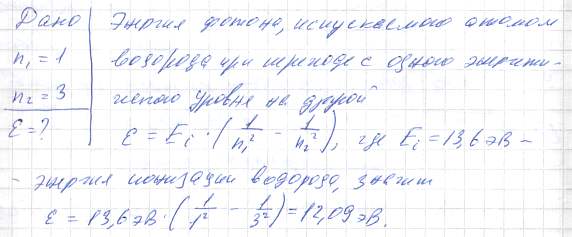 Дано
Энергия фотона, испускаемого атомом
n₁ = 1
водорода при переходе с одного энергети-
n₂ = 3
ческого уровня на другой
ε = ?
ε = Eᵢ · (1/n₁² - 1/n₂²), где Eᵢ = 13,6 эВ -
- энергия ионизации водорода, значит
ε = 13,6 эВ · (1/1² - 1/3²) = 12,09 эВ.